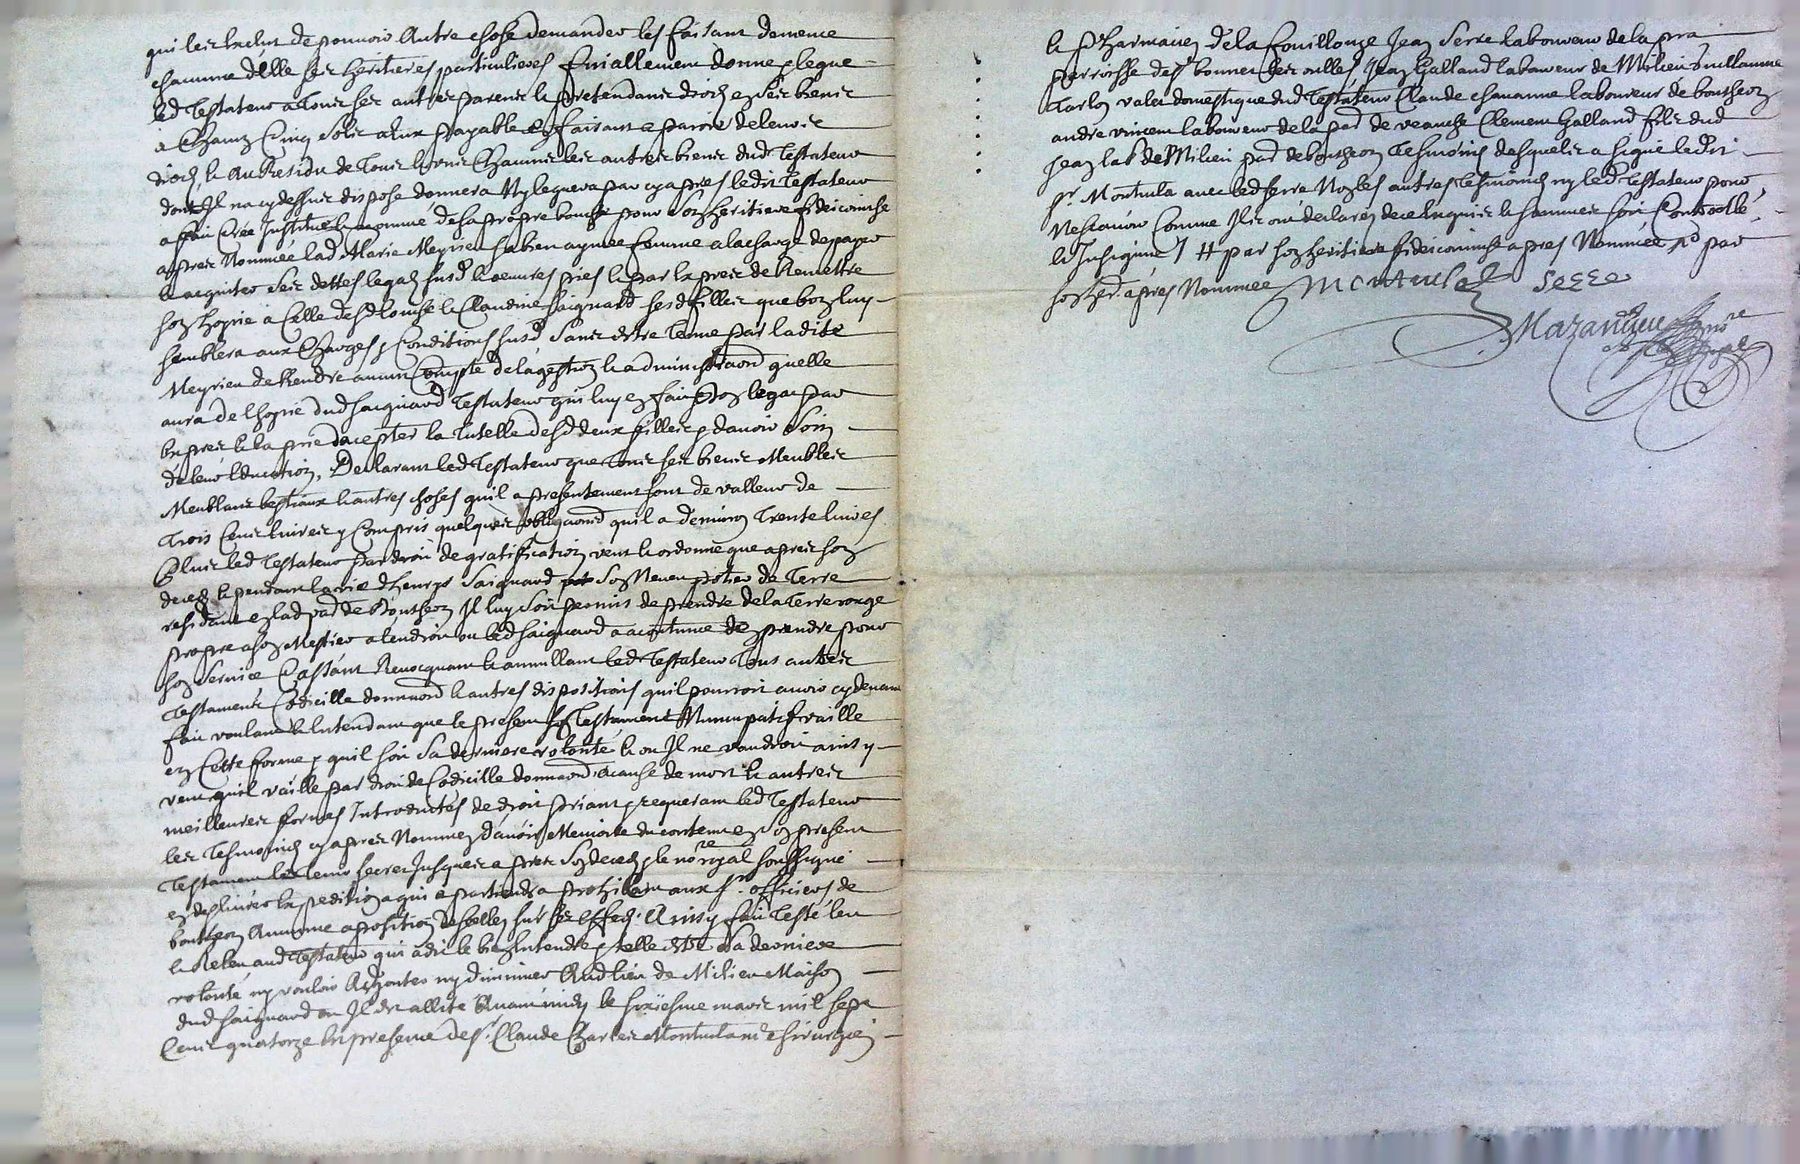 qui les exclut de pouvoir autre chose demander les faisant de meme
chacunne d'elle ses heritieres particulieres finallement donne legue
led testateur a tous ses autres parens et pretendans droit en ses biens
a chacun cinq sols a eux payable en faisant apparoir de leurs
droits, et au Residu de tous et uns chacuns les autres biens dud testateur
dont Il na cy dessus dispose donnera ny leguera par cy apres ledit testateur
a fait cree Institué et nomme de sa propre bouche pour son heritiere fideicomise
apres Nommée lad Marie Meyrieu sa bien aymée femme a la charge de payer
et acquiter ses dettes legats susd et oeuvres pies et par exprès de Remettre
son hoirie a Celle desd Louise et Claudine Saignard sesd filles que bon luy
semblera aux Charges et Conditions susd sans estre tenue par ladite
Meyrieu de Rendre aucun Compte de la gestion et administraon quelle
aura de l'hoirie dud Saignard testateur qui luy en fait don et legat par
exprès et la prie d'acepter la tutelle desd deux filles et d'avoir soin
de leur Education, Declarant led testateur que tous ses biens Meubles
Meublans bestiaux et autres choses quil a presentement sont de valleur de
trois Cens livres y Compris quelques obligaons quil a d'environ trente livres
Plus led testateur par droit de gratification veut et ordonne que apres son
deces et pendant la vie d'henrys Saignard son Neveu potier de terre
residant en lad par de Bontheon Il luy soit permis de prendre de la terre rouge
propre a son Mestier a l'endroit ou led Saignard a acoutumé de prendre pour
son service Cassant Revocquant et annullant led testateur tous autres
testament Codicille donnaon et autres dispositions quil pourroit avoir cy devant
fait voulant et Entendant que le present son testament Nuncupatif vaille
en Cette forme et quil soit sa derniere volonté et ou Il ne vaudroit ainsy
veut quil vaille par droit de Codicille donnaon a cause de mort et autres
meilleures formes Introduites de droit priant et requerant led testateur
les tesmoings cy apres Nommez d'avoir Memoire du contenu en son present
testament et le tenir secret Jusques apres son deces et le nore royal soussigné
en deslivrer Expedition a qui apartiendra prohibant aux srs officiers de
bontheon aucune aposition de scellez sur ses effets. Ainsy fait testé leu
et Releu aud testateur qui a dit le bien Entendre et telle estre sa derniere
volonté ny vouloir Adjouter ny diminuer Aud lieu de Milieu Maison
dud Saignard ou Il est allité Avant midy le sixiesme mars mil sept
Cens quatorze En presence de sr. Claude Charles Montulat me chirurgien
et Pharmacien de la fouillouze Jean Serre laboureur de la pra
perroisse de st bonnet les oulles Jean Galland laboureur de Milieu Guillaume
valet domestique dud testateur Claude chavanne laboureur de bontheon
andre vincent laboureur de la par de veauche Clement Galland fils dud
Jean lab de Milieu par de bontheon tesmoins desquels a signé ledit
sr. Montulat avec led Serre Non les autres tesmoins ny led testateur pour
Ne scavoir Comme Ils ont declarez de ce Enquis et sommez soit Controollé
et Insignué / # par son heritiere fideicomise apres Nommée # par
son her. apres Nommée Montulat Serre
Mazandieu nore